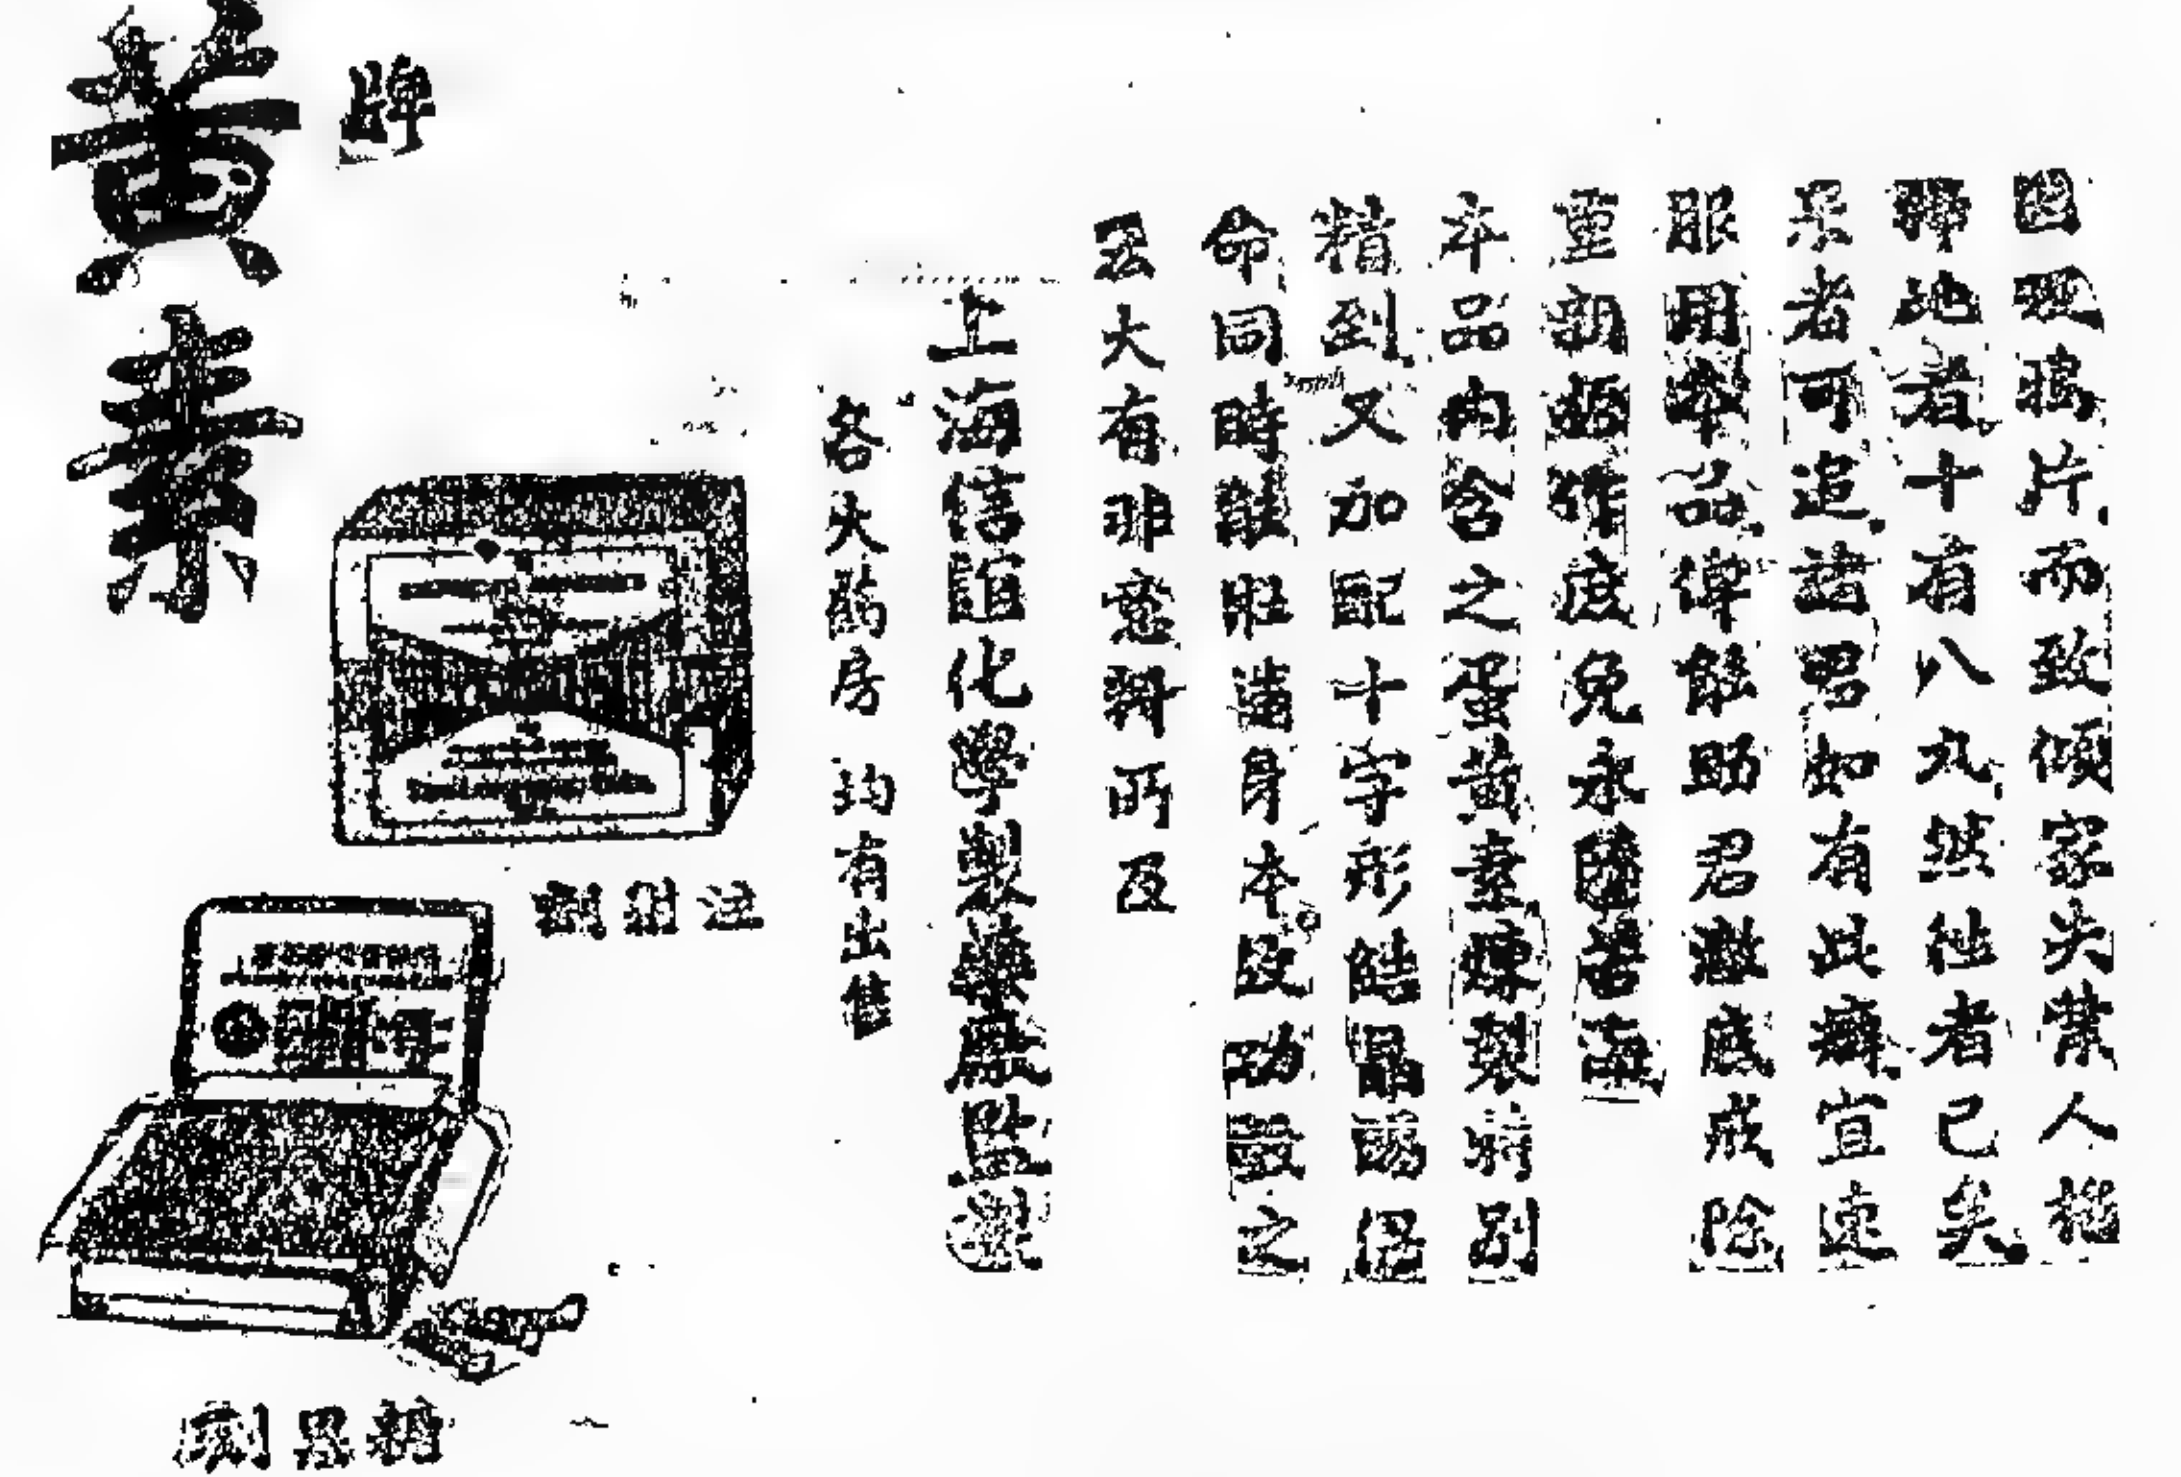 因吸鴉片而致傾家失業人格
掃地者十有八九然往者已矣
來者可追諸君如有此癖宜速
服用本品俾能助君澈底戒除
重新振作庶免永墮苦海
本品內含之蛋黃素煉製特別
精到又加配十字形
命同時能壯健身本故功效之
宏大有非意料所及
上海信誼化學製藥廠監製
各大葯房均有出售
牌
黃素
注射劑
劑